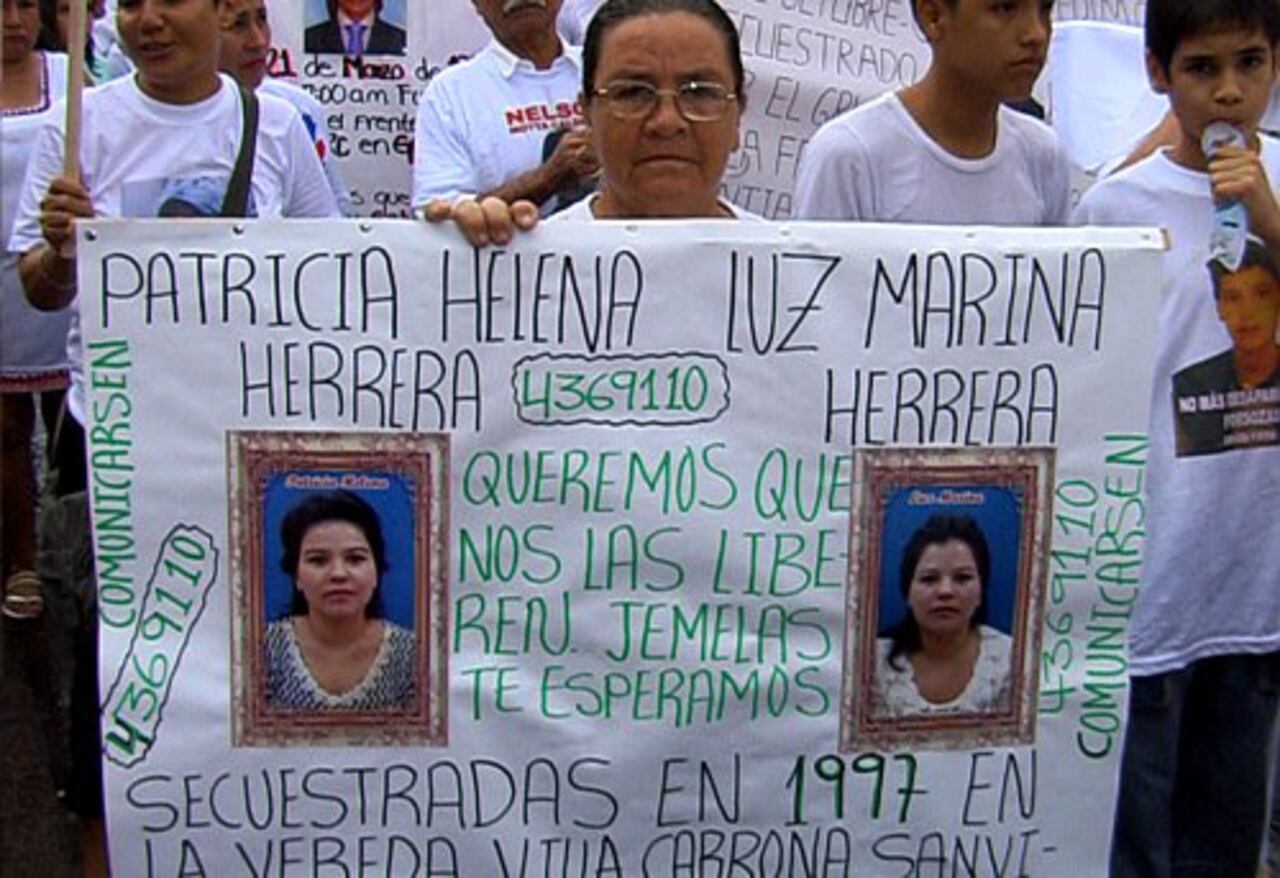 21 de Marzo de
7:00 am
el frente
en
NELSO
OCTUBRE-
CUESTRADO
EL
PATRICIA HELENA LUZ MARINA
HERRERA 4369110 HERRERA
COMUNICARSEN
4369110
Patricia Helena
Luz Marina
QUEREMOS QUE
NOS LAS LIBE-
REN. JEMELAS
TE ESPERAMOS
4369110
COMUNICARSEN
SECUESTRADAS EN 1997 EN
LA VEREDA VILLA CABRONA SANVI-
NO MÁS